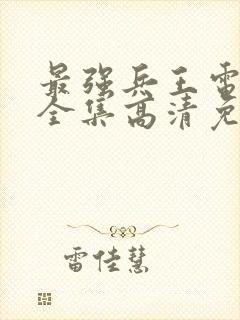 最强兵王雷
全集高清免
雷佳慧